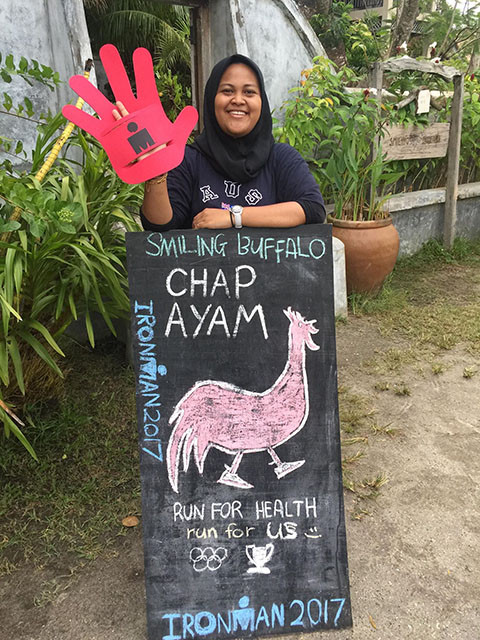 AUS
SMILING BUFFALO
CHAP
AYAM
IRONMAN 2017
RUN FOR HEALTH
run for US
IRONMAN 2017